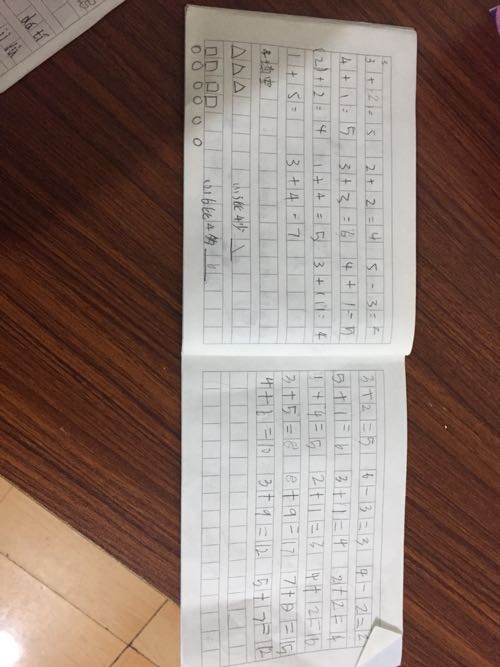 3+(2)=5 2+2=4 5-3=2
4+1=5 3+3=6 4+1=5
(2)+2=4 1+4=5 3+(1)=4
1+5= 3+4=7
填空
△△△
□□□□
○○○○○○○
3+2=5 6-3=3 4-2=2
5+1=6 3+1=4 2+2=4
1+4=5 2+1=3 4+2=6
3+5=8 8+9=17 7+8=15
3+9=12 5+7=12